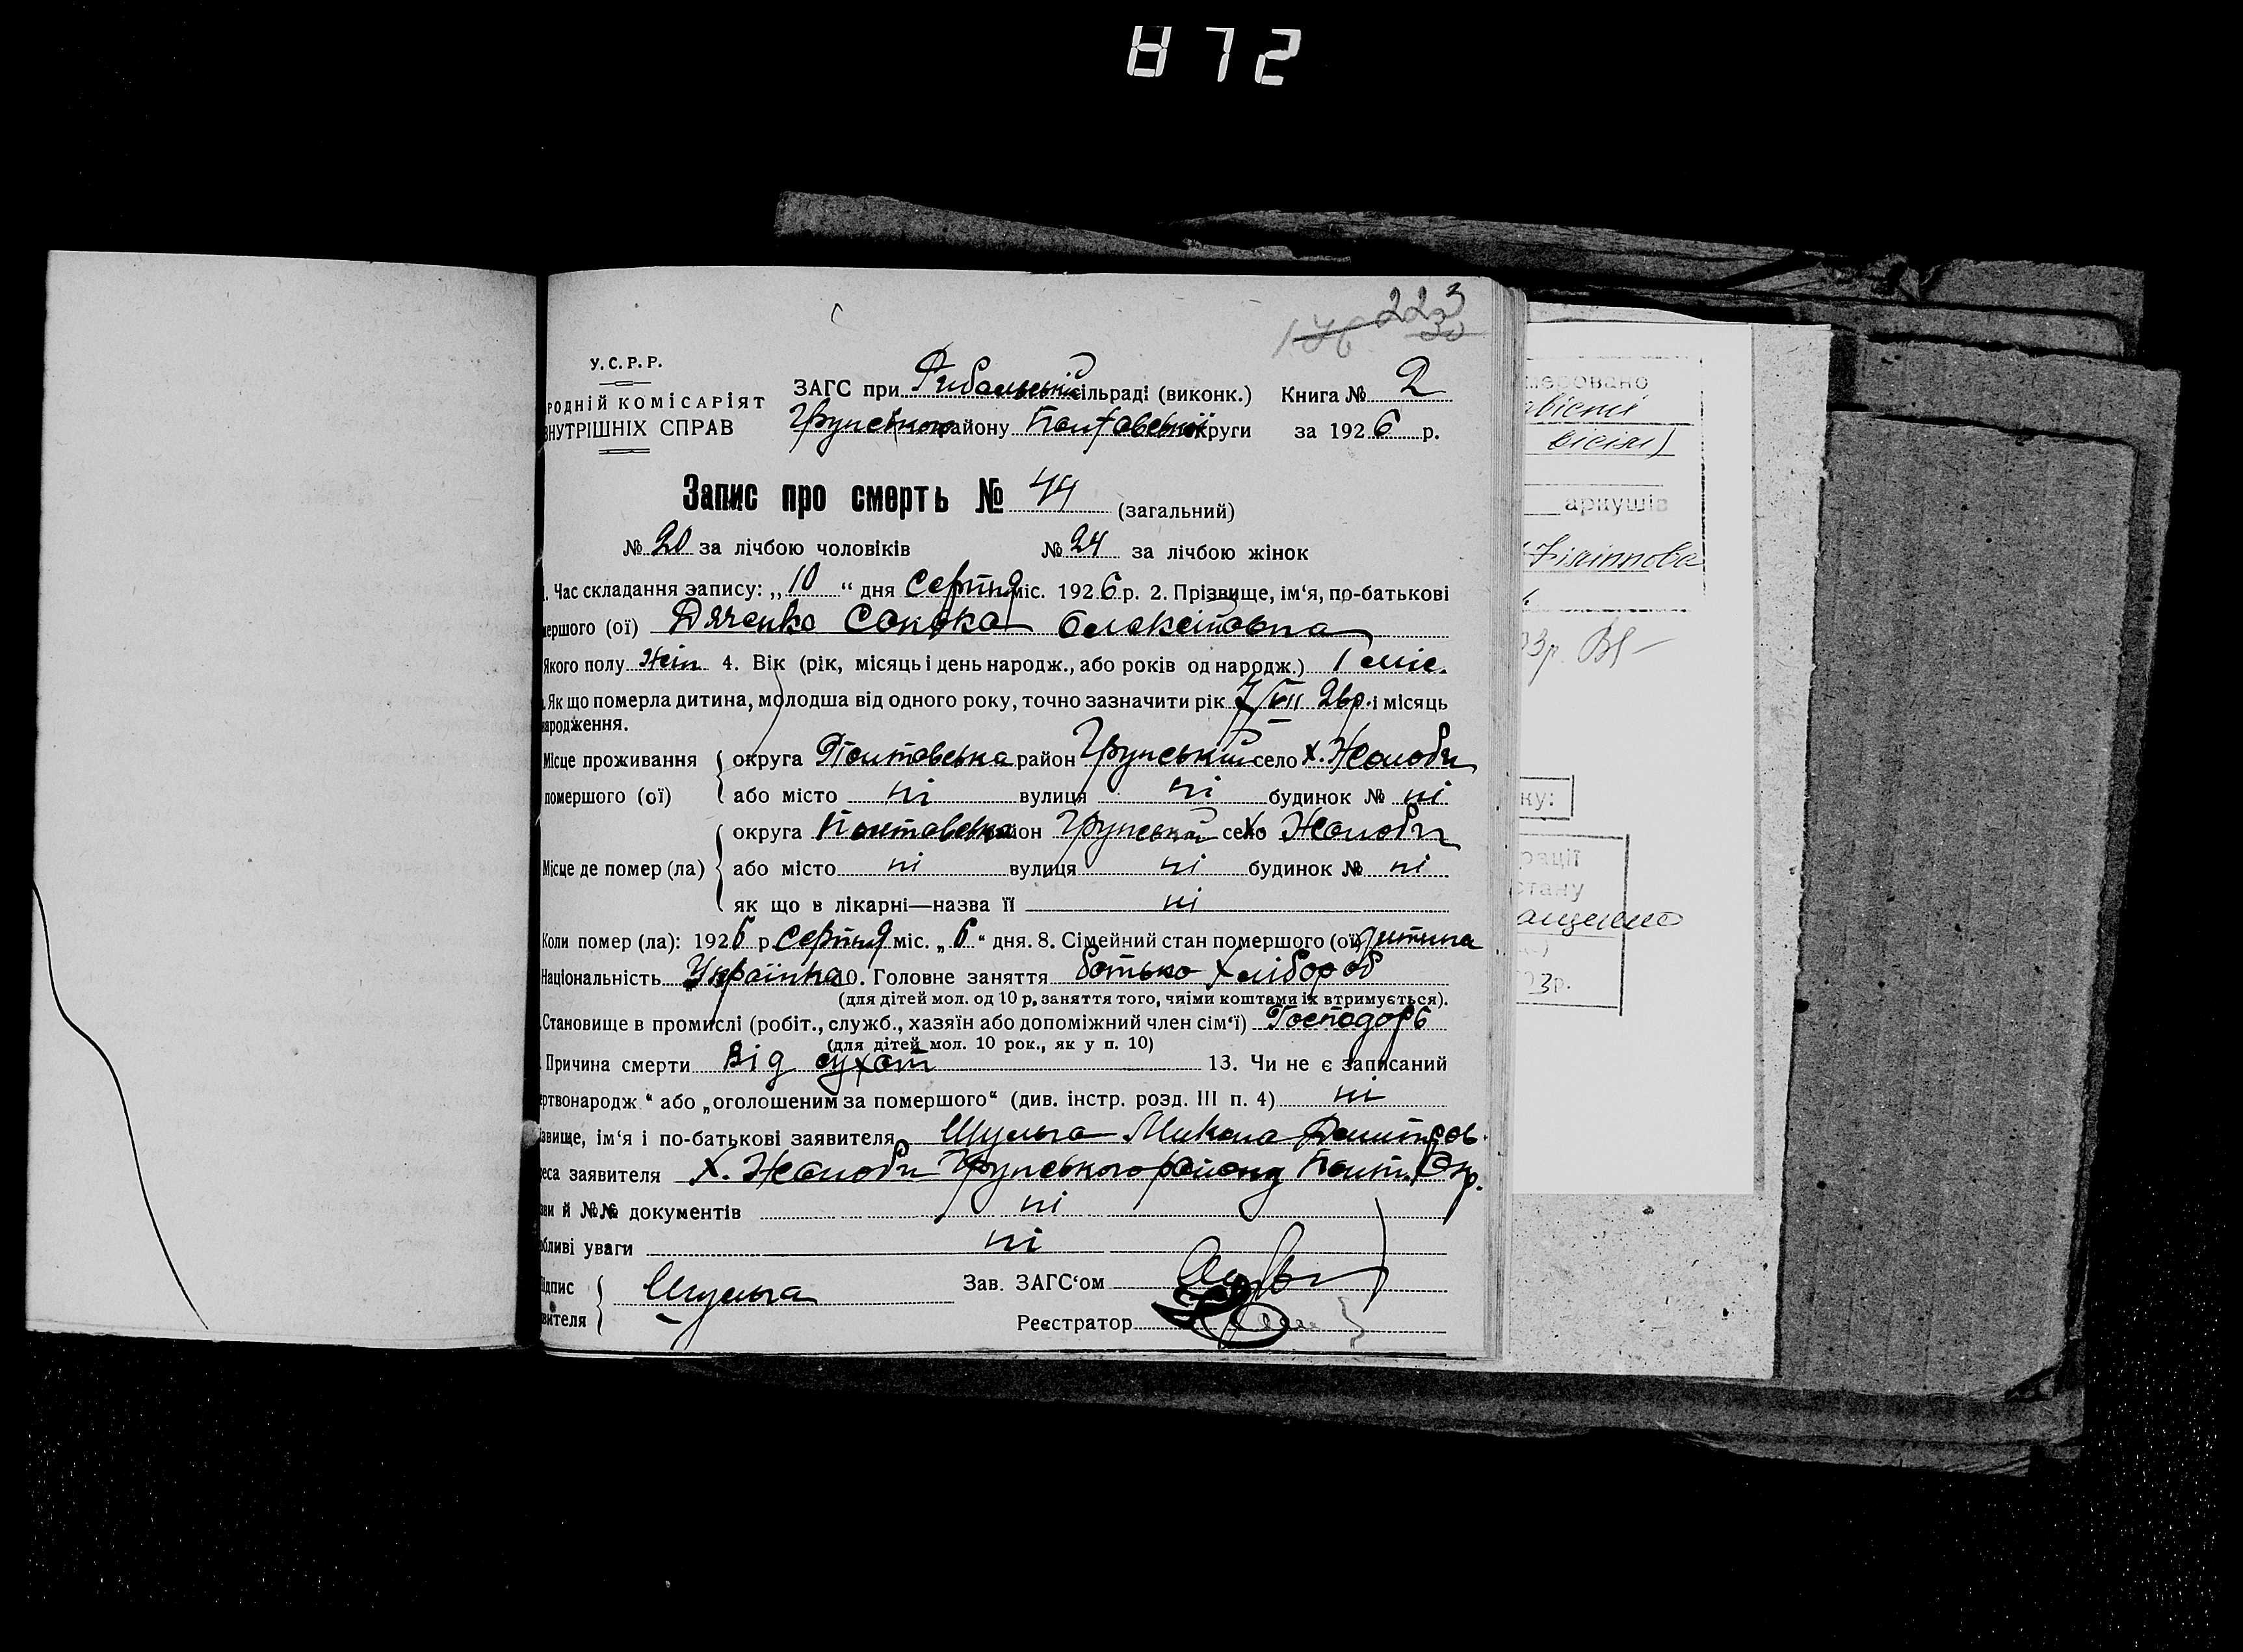 872
223
У.С.Р.Р.
РОДНІЙ КОМІСАРІЯТ
ВНУТРІШНІХ СПРАВ
ЗАГС при Рибальській сільраді (виконк.) Книга № 2
Грунського району Полтавської округи за 1926 р.
Запис про смерть № 44 (загальний)
№ 20 за лічбою чоловіків № 24 за лічбою жінок
1. Час складання запису: „10“ дня Серпня міс. 1926 р. 2. Прізвище, ім‘я, по-батькові
мершого (ої) Дяченко Сонька Олексіївна
Якого полу Жін 4. Вік (рік, місяць і день народж., або років од народж.) 1 міс.
Як що померла дитина, молодша від одного року, точно зазначити рік 7/VII 26р. і місяць
народження.
Місце проживання округа Полтавська район Грунський село х. Жолоби
помершого (ої) або місто ні вулиця ні будинок № ні
округа Полтавська район Грунський село х Жолоби
Місце де помер (ла) або місто ні вулиця ні будинок № ні
як що в лікарні—назва її ні
Коли помер (ла): 1926 р. Серпня міс. „6“ дня. 8. Сімейний стан помершого (ої) дитина
Національність Українка 10. Головне заняття батько Хлібороб
(для дітей мол. од 10 р, заняття того, чиїми коштами їх втримується).
Становище в промислі (робіт., служб., хазяїн або допоміжний член сім‘ї) Господарь
(для дітей мол. 10 рок., як у п. 10)
Причина смерти Від сухот 13. Чи не є записаний
ертвонародж“ або „оголошеним за помершого“ (див. інстр. розд. III п. 4) ні
ізвище, ім‘я і по-батькові заявителя Шульга Микола Дмитров.
еса заявителя х. Жолоби Грунського району Полт. Окр.
зви й №№ документів ні
обливі уваги ні
ідпис
вителя Шульга Зав. ЗАГС‘ом
Реєстратор
меровано
аркушів
ку:
рації
стану
ащенко